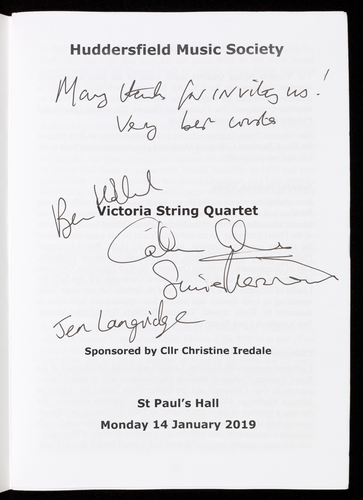 Huddersfield Music Society
Many thanks for inviting us!
Very best wishes
Ben Holland
Victoria String Quartet
Jen Langridge
Sponsored by Cllr Christine Iredale
St Paul's Hall
Monday 14 January 2019